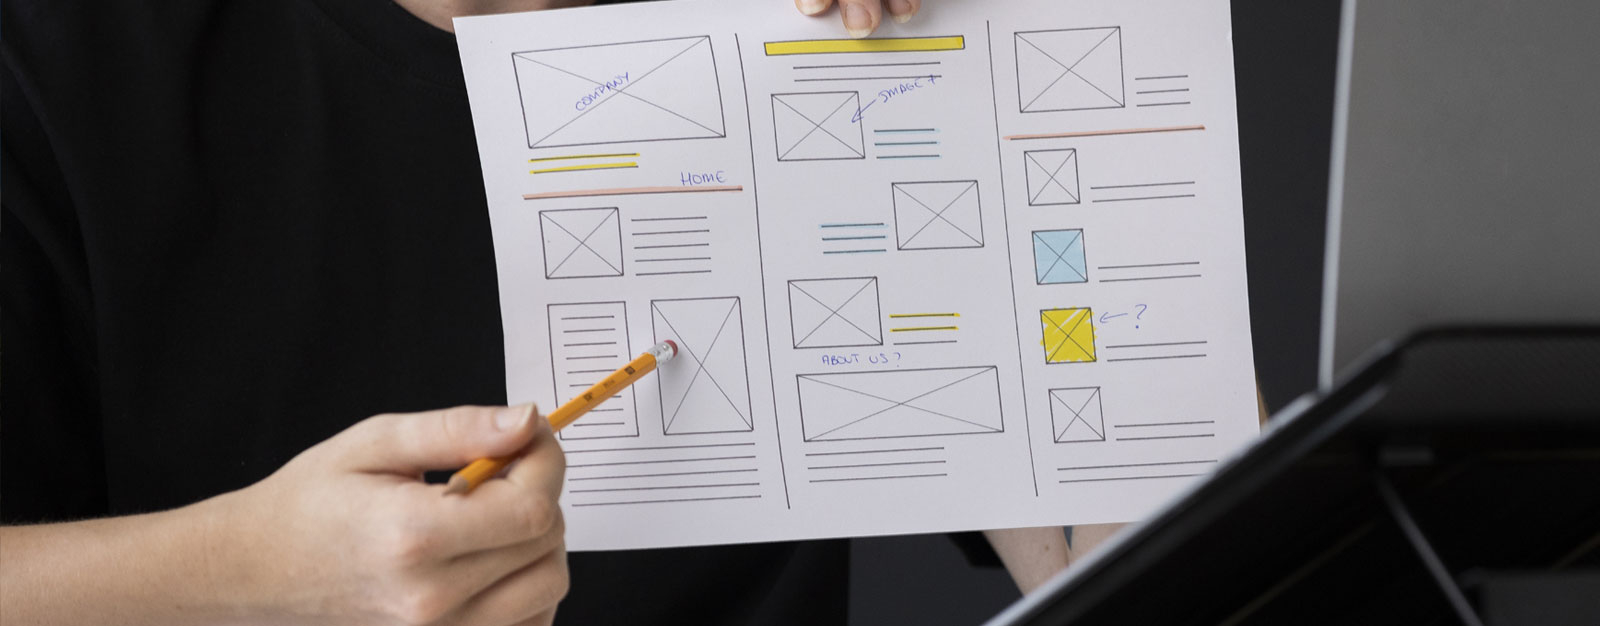 COMPANY
HOME
IMAGE +
ABOUT US?
?